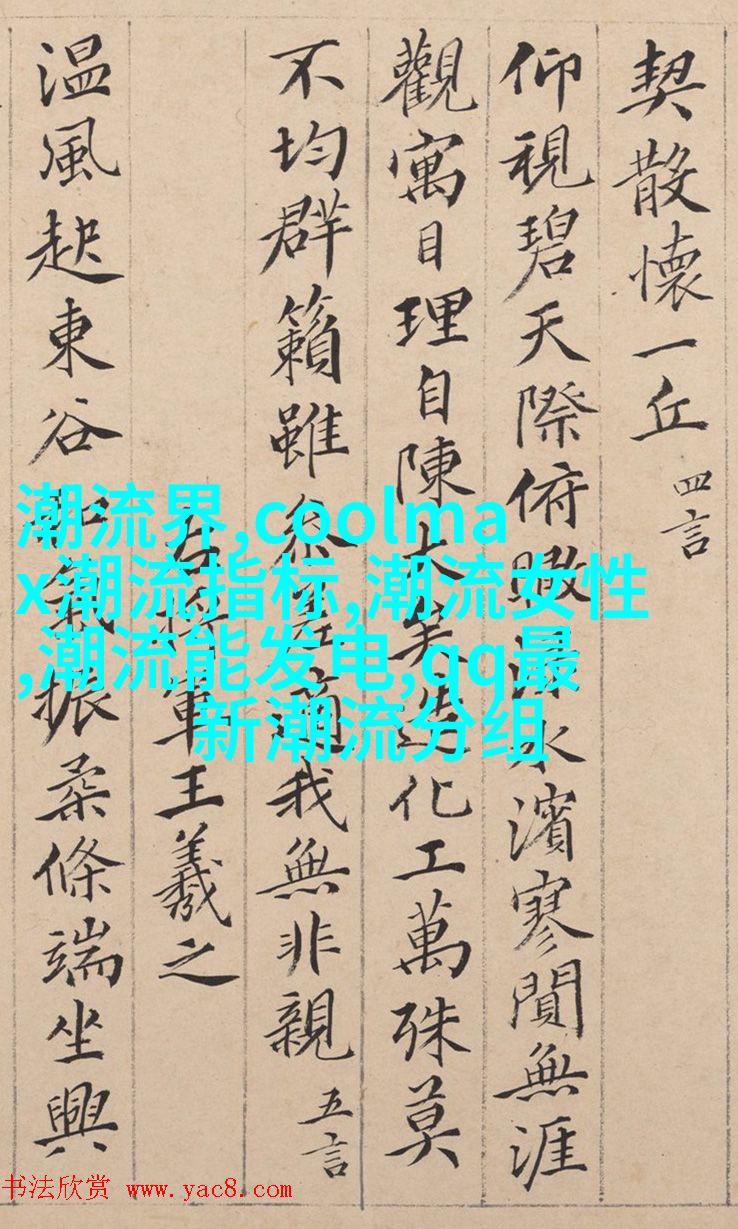 契散懷一丘 四言
仰視碧天際俯瞰水濱寥閴無涯
觀寓目理自陳大矣造化工萬殊莫
不均群籟雖参差適我無非親 五言
右将軍王羲之
温風起東谷和氣振柔條端坐興
潮流界,coolma
x潮流指标,潮流女性
,潮流能发电,qq最
新潮流分组
书法欣赏 www.yac8.com